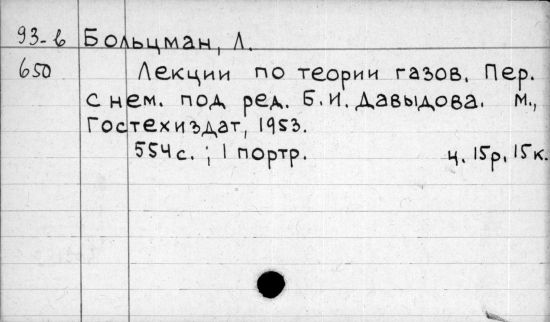 93-в Больцман, Л.
650 Лекции по теории газов. Пер.
с нем. под ред. Б.И. Давыдова. М.,
Гостехиздат, 1953.
554 с. ; 1 портр. ц. 15р. 15к.